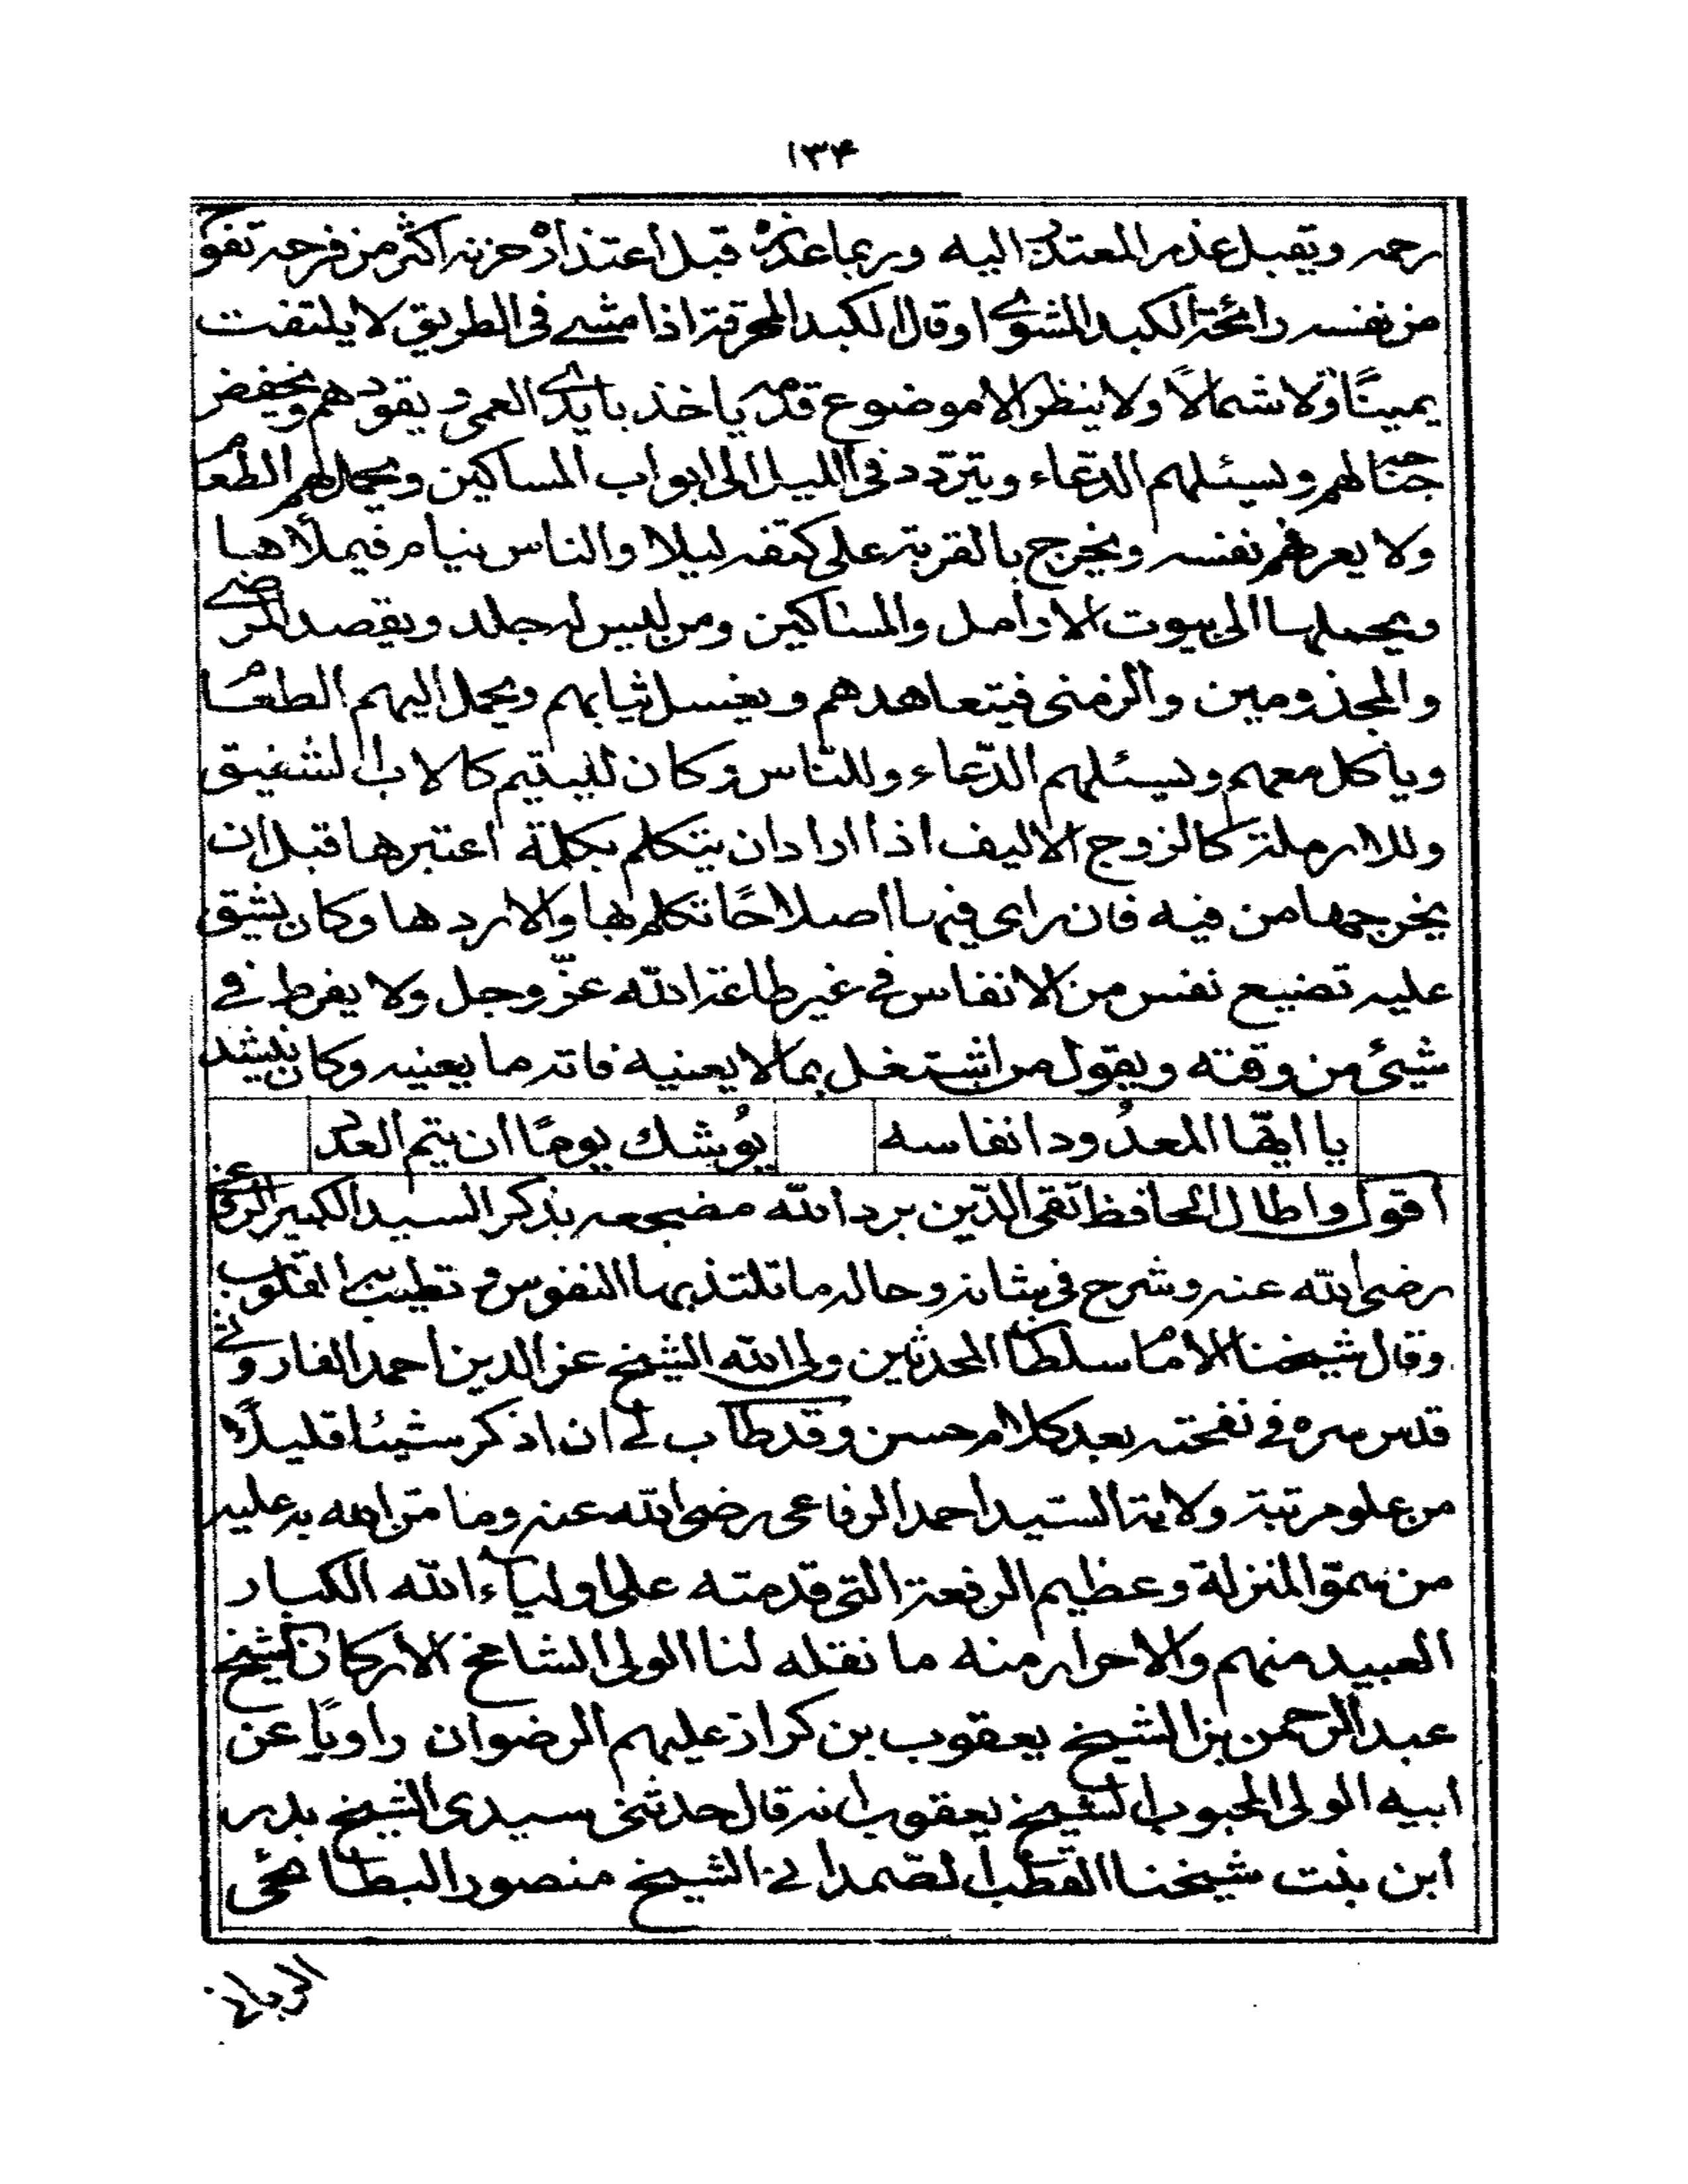 ١٣۴
رحمه ويقبل عذر المعتذر اليه وربما عذره قبل اعتذاره حزنه اكثر من فرحه تفوح
من نفسه رائحة الكبد المشوى او قال الكبد المحرقة اذا مشى فى الطريق لا يلتفت
يمينًا ولا شمالًا ولا ينظر الا موضوع قدمه ياخذ بايدى العمى ويقودهم ويخفض
جناحه لهم ويسئلهم الدّعاء ويتردد فى الليل الى ابواب المساكين ويحمل لهم الطعام
ولا يعرفهم نفسه ويخرج بالقربة على كتفه ليلا والناس نيام فيملأها
ويحملها الى بيوت الارامل والمساكين ومن ليس له جلد ويقصد المرضى
والمجذومين والزمنى فيتعاهدهم ويغسل ثيابهم ويحمل اليهم الطعام
وياكل معهم ويسئلهم الدّعاء وللنّاس وكان لليتيم كالاب الشفيق
وللارملة كالزوج الاليف اذا اراد ان يتكلم بكلمة اعتبرها قبل ان
يخرجها من فيه فان راى فيها اصلاحًا تكلم بها والا ردها وكان يشق
عليه تضيع نفس من الانفاس فى غير طاعة الله عزّ وجل ولا يفرط فى
شيئ من وقته ويقول من اشتغل بما لا يعنيه فاته ما يعنيه وكان ينشد
يا ايّها المعدُود انفاسه يُوشك يومًا ان يتم العدد
اقول واطال الحافظ تقى الدّين برد الله مضجعه بذكر السيد الكبير الرفاعى
رضى الله عنه وشرح فى شانه وحاله ما تلتذ بها النفوس وتطيب به القلوب
وقال شيخنا الامام سلطان المحدثين ولى الله الشيخ عز الدين احمد الفاروثى
قدس سره فى نفحته بعد كلام حسن وقد طاب لى ان اذكر شيئا قليلًا
من علو مرتبة ولاية السّيد احمد الرفاعى رضى الله عنه وما منّ الله به عليه
من سمو المنزلة وعظيم الرفعة التى قدمته على اولياء الله الكبار
العبيد منهم والاحرار منه ما نقله لنا الولى الشامخ الاركان الشيخ
عبد الرحمن بن الشيخ يعقوب بن كراز عليهم الرضوان راويًا عن
ابيه الولى المحبوب الشيخ يعقوب انه قال حدثنى سيدى الشيخ بدر
ابن بنت شيخنا القطب الصّمدانى الشيخ منصور البطائحى
الربانى